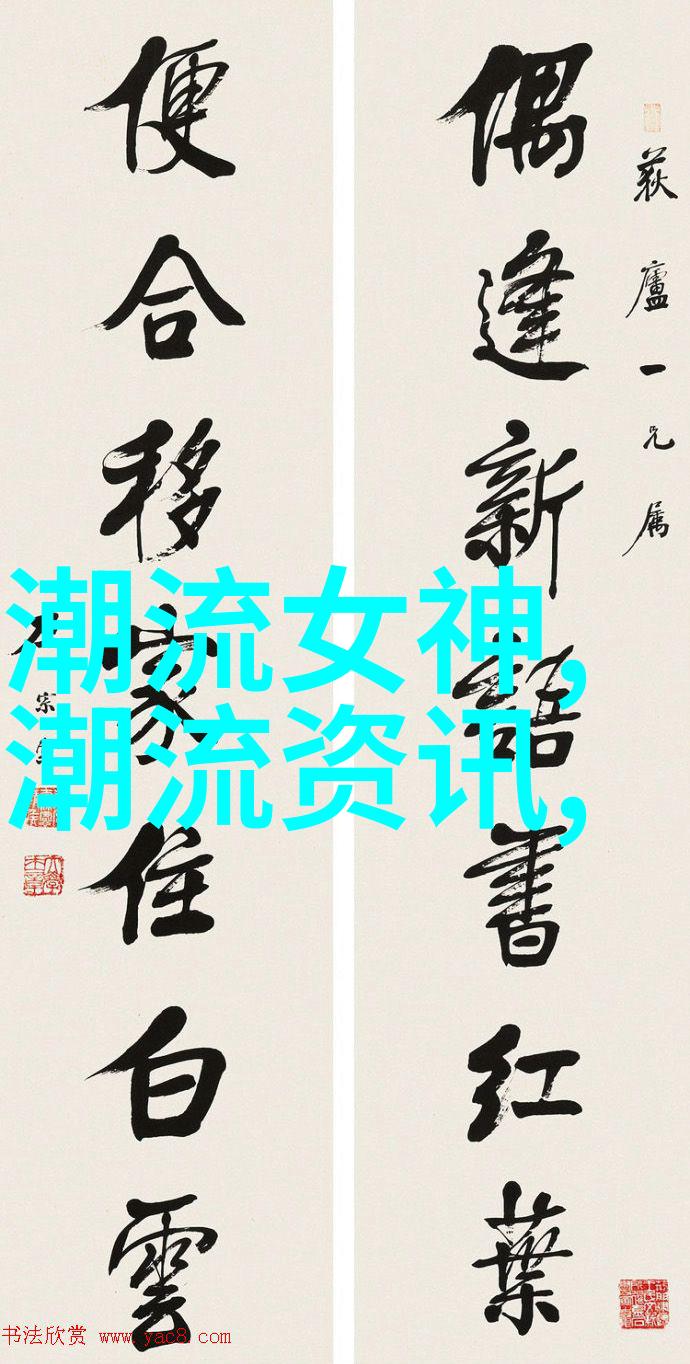 荻廬一兄屬
偶逢新語書红葉
便合移家住白雲
潮流女神,
潮流资讯,
书法欣赏 www.yac8.com